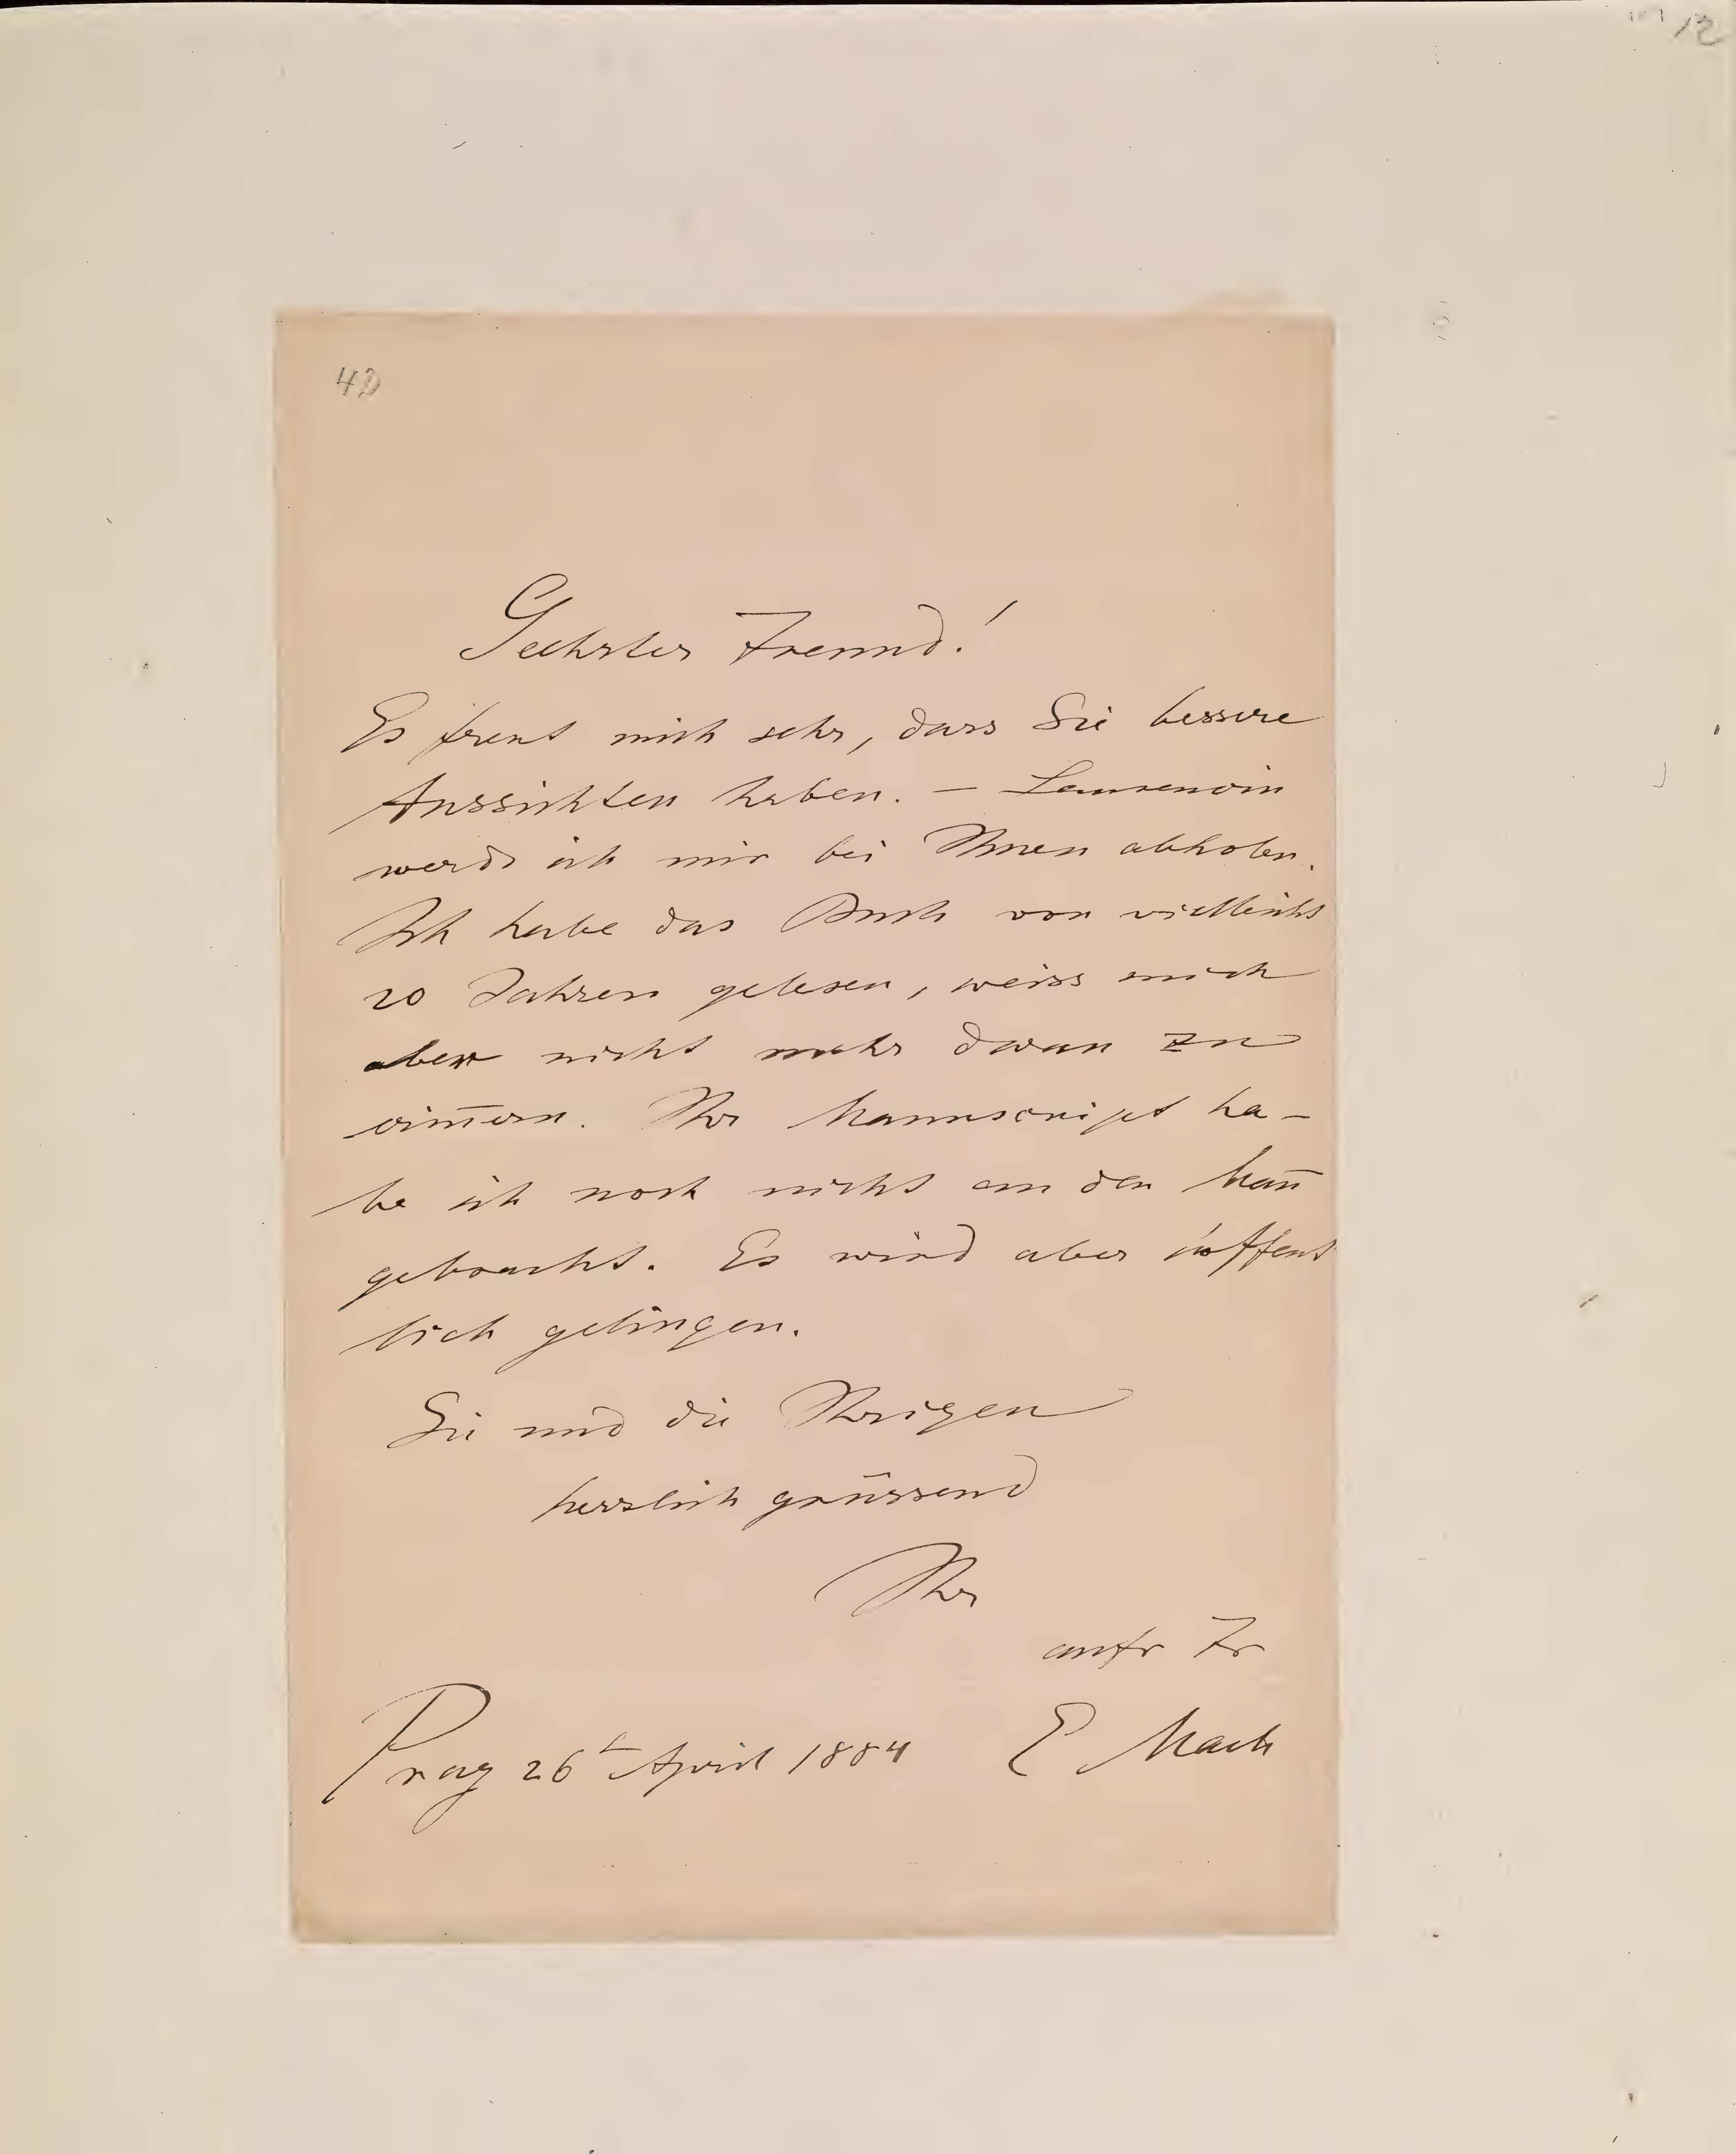 12
42
Geehrter Freund!
Es freut mich sehr, dass Sie bessere
Aussichten haben. –
werde ich mir bei Ihnen abholen.
Ich habe das Buch vor vielleicht
20 Jahren gelesen, weiss mich
aber nicht mehr daran zu
erin̄ern. Ihr Manuscript ha-
be ich noch nicht an den Man̄
gebracht. Es wird aber hoffent
lich gelingen.
Sie und die Ihrigen
herzlich grüssend
Ihr
aufr Fr
E Mach
Prag 26t April 1884